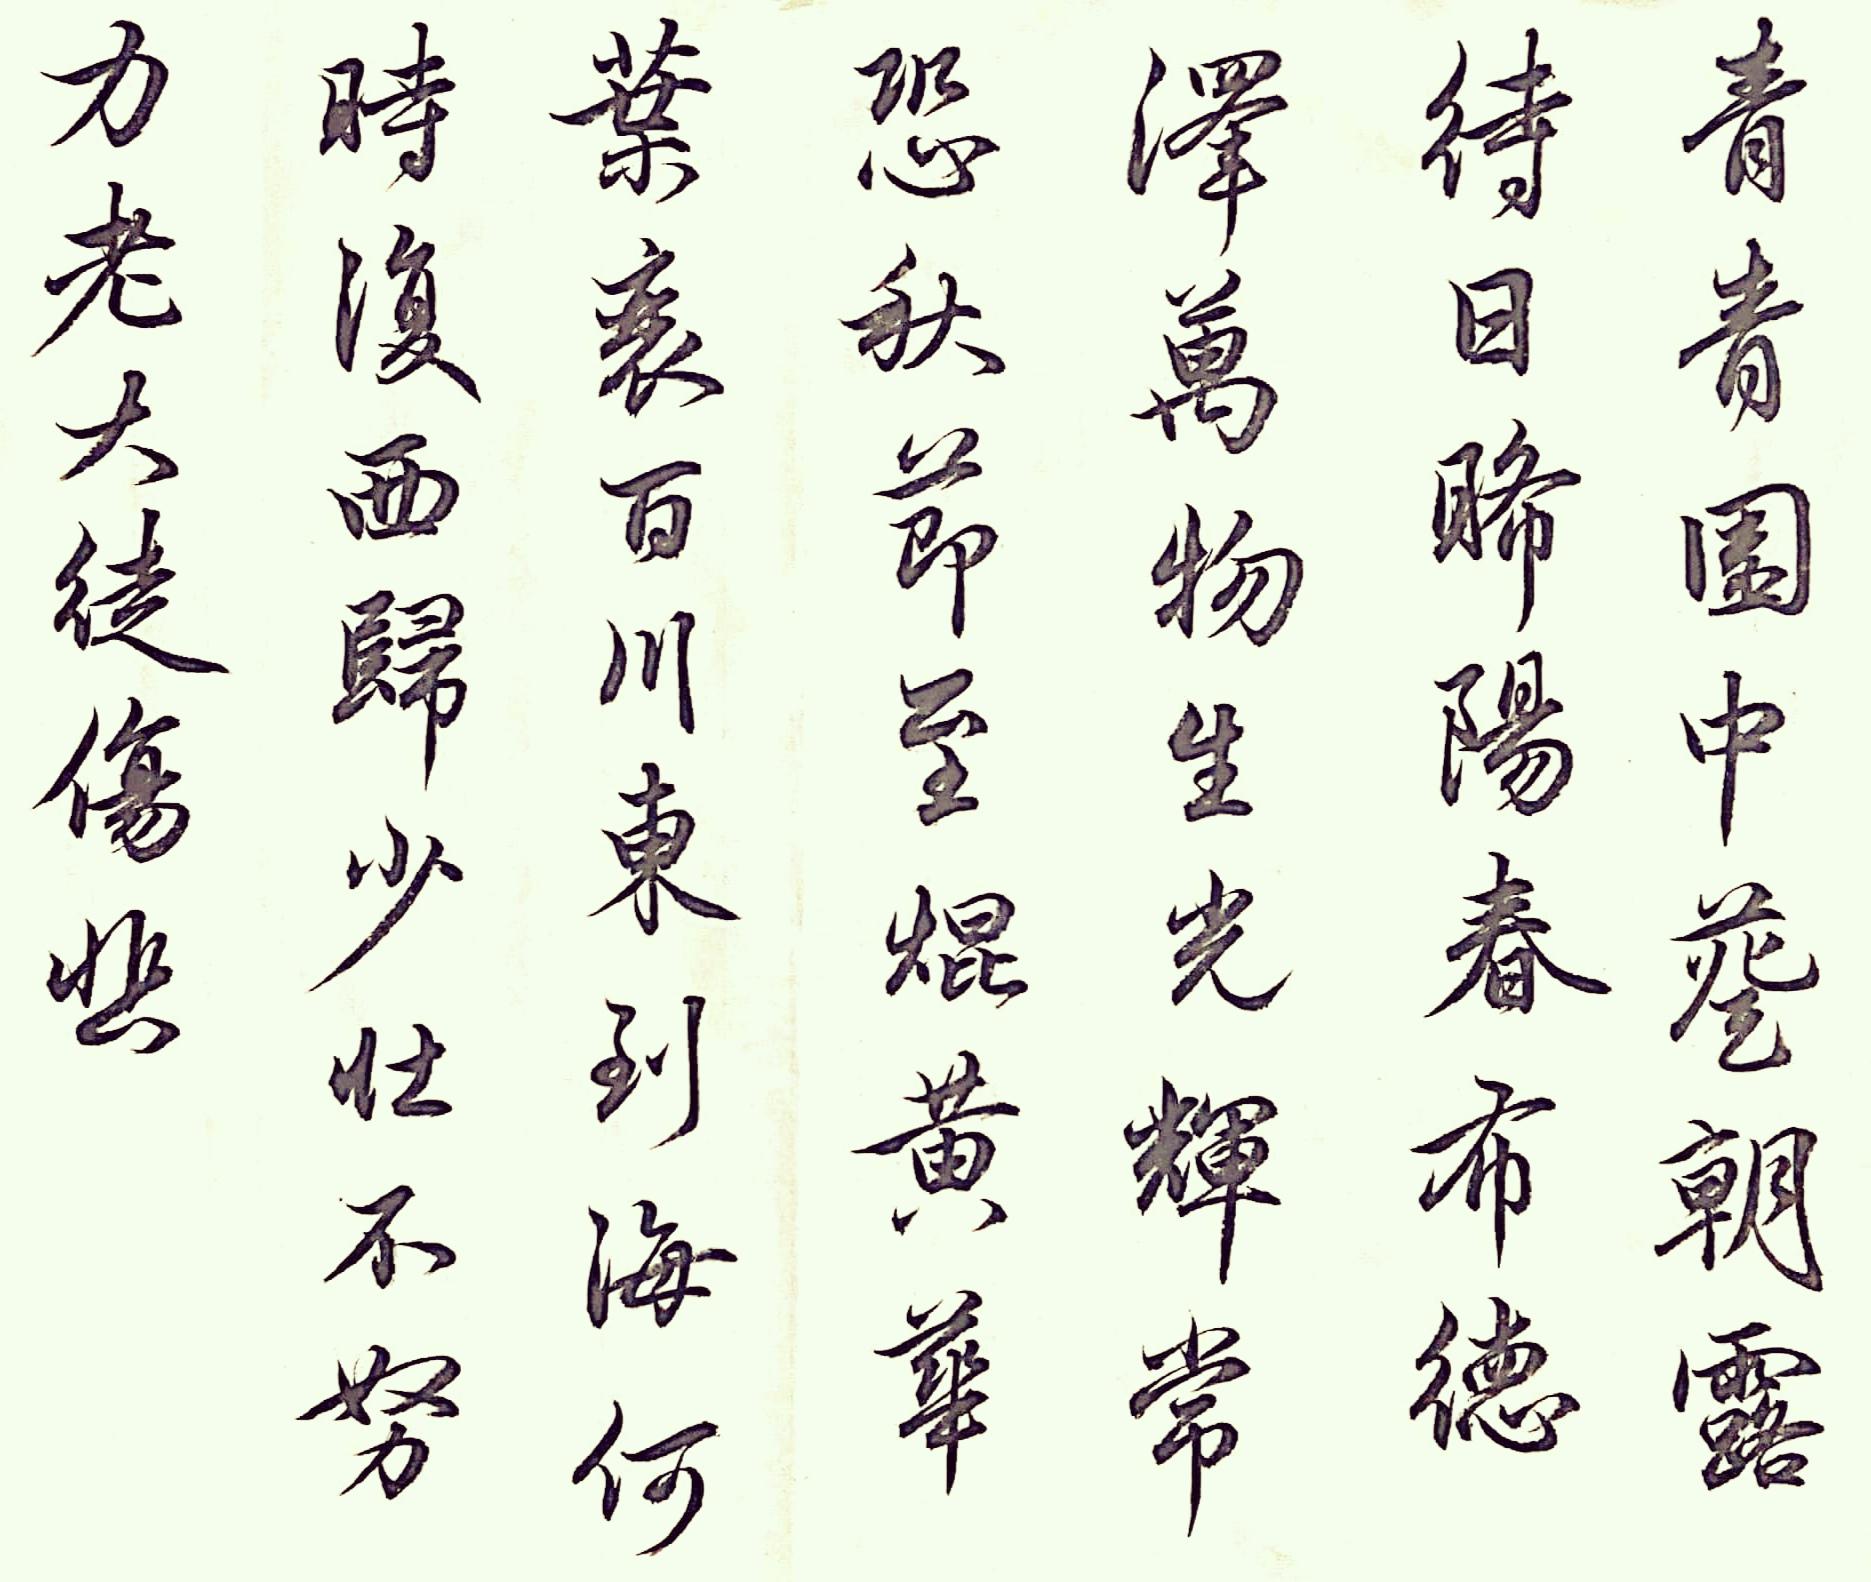 青青園中葵朝露
待日晞陽春布德
澤萬物生光輝常
恐秋節至焜黃華
葉衰百川東到海何
時復西歸少壯不努
力老大徒傷悲